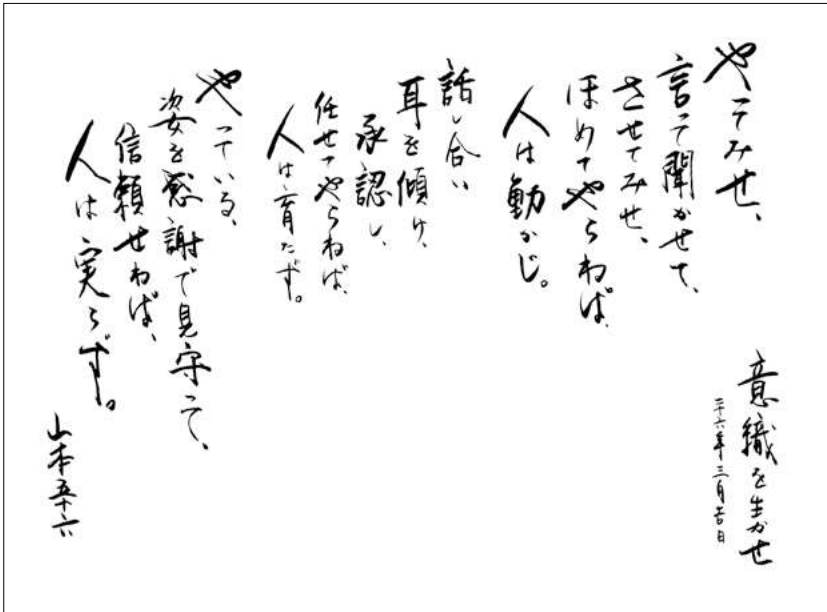 意識を生かせ
二十六年三月吉日
やってみせ、
言って聞かせて、
させてみせ、
ほめてやらねば、
人は動かじ。
話し合い
耳を傾け、
承認し、
任せてやらねば、
人は育たず。
やっている、
姿を感謝で見守って、
信頼せねば、
人は実らず。
山本五十六